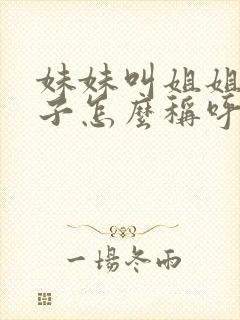 妹妹叫姐姐
子怎麼稱呼
一場冬雨